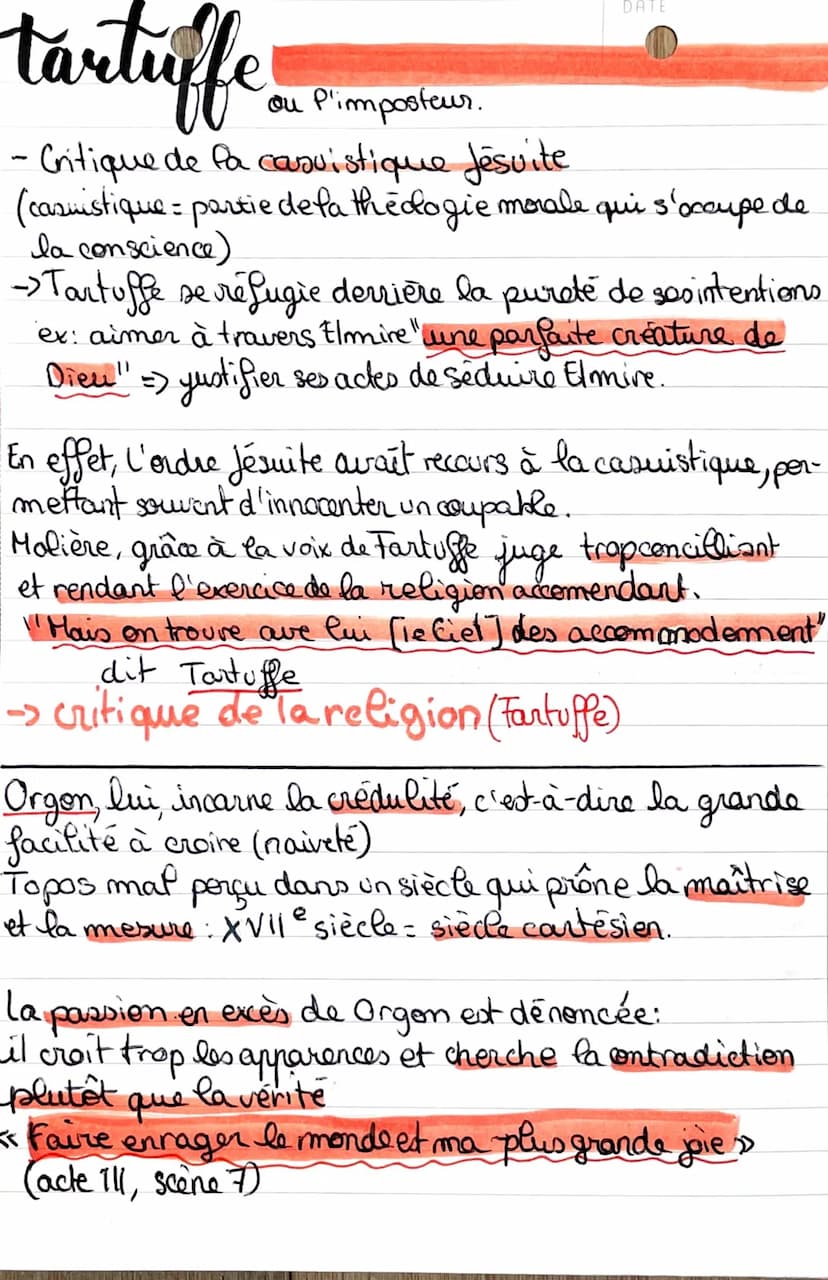 DATE
tartuffe
ou l'imposteur.
- Critique de la casuistique Jésuite
(casuistique = partie de la théologie morale qui s'occupe de
la conscience)
-> Tartuffe se réfugie derrière la pureté de ses intentions
ex: aimer à travers Elmire "une parfaite créature de
Dieu" => justifier ses actes de séduire Elmire.
En effet, l'ordre Jésuite avait recours à la casuistique, per-
mettant souvent d'innocenter un coupable.
Molière, grâce à la voix de Tartuffe juge trop concilliant
et rendant l'exercice de la religion accomendant.
"Mais on trouve ave lui [le Ciel] des accommodement"
dit Tartuffe
-> critique de la religion (Tartuffe)
Orgon, lui, incarne la crédulité, c'est-à-dire la grande
facilité à croire (naiveté)
Topos mal perçu dans un siècle qui prône la maîtrise
et la mesure : XVIIe siècle = siècle cartésien.
La passion en excès de Orgon est dénoncée:
il croit trop les apparences et cherche la contradiction
plutôt que la vérité
« Faire enrager le monde et ma plus grande joie »
(acte III, scène 7)